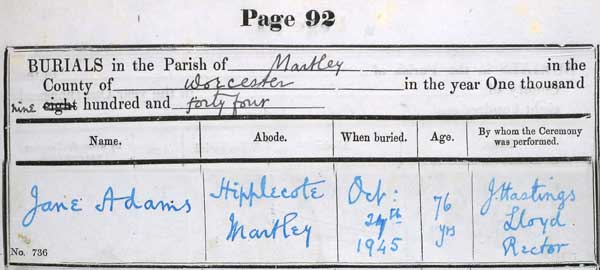 Page 92
BURIALS in the Parish of Martley in the
County of Worcester in the year One thousand
nine eight hundred and forty four
Name. Abode. When buried. Age. By whom the Ceremony was performed.
Jane Adams
Hipplecote
Martley
Oct:
1945
76
yrs
J Hastings
Lloyd
Rector
No. 736